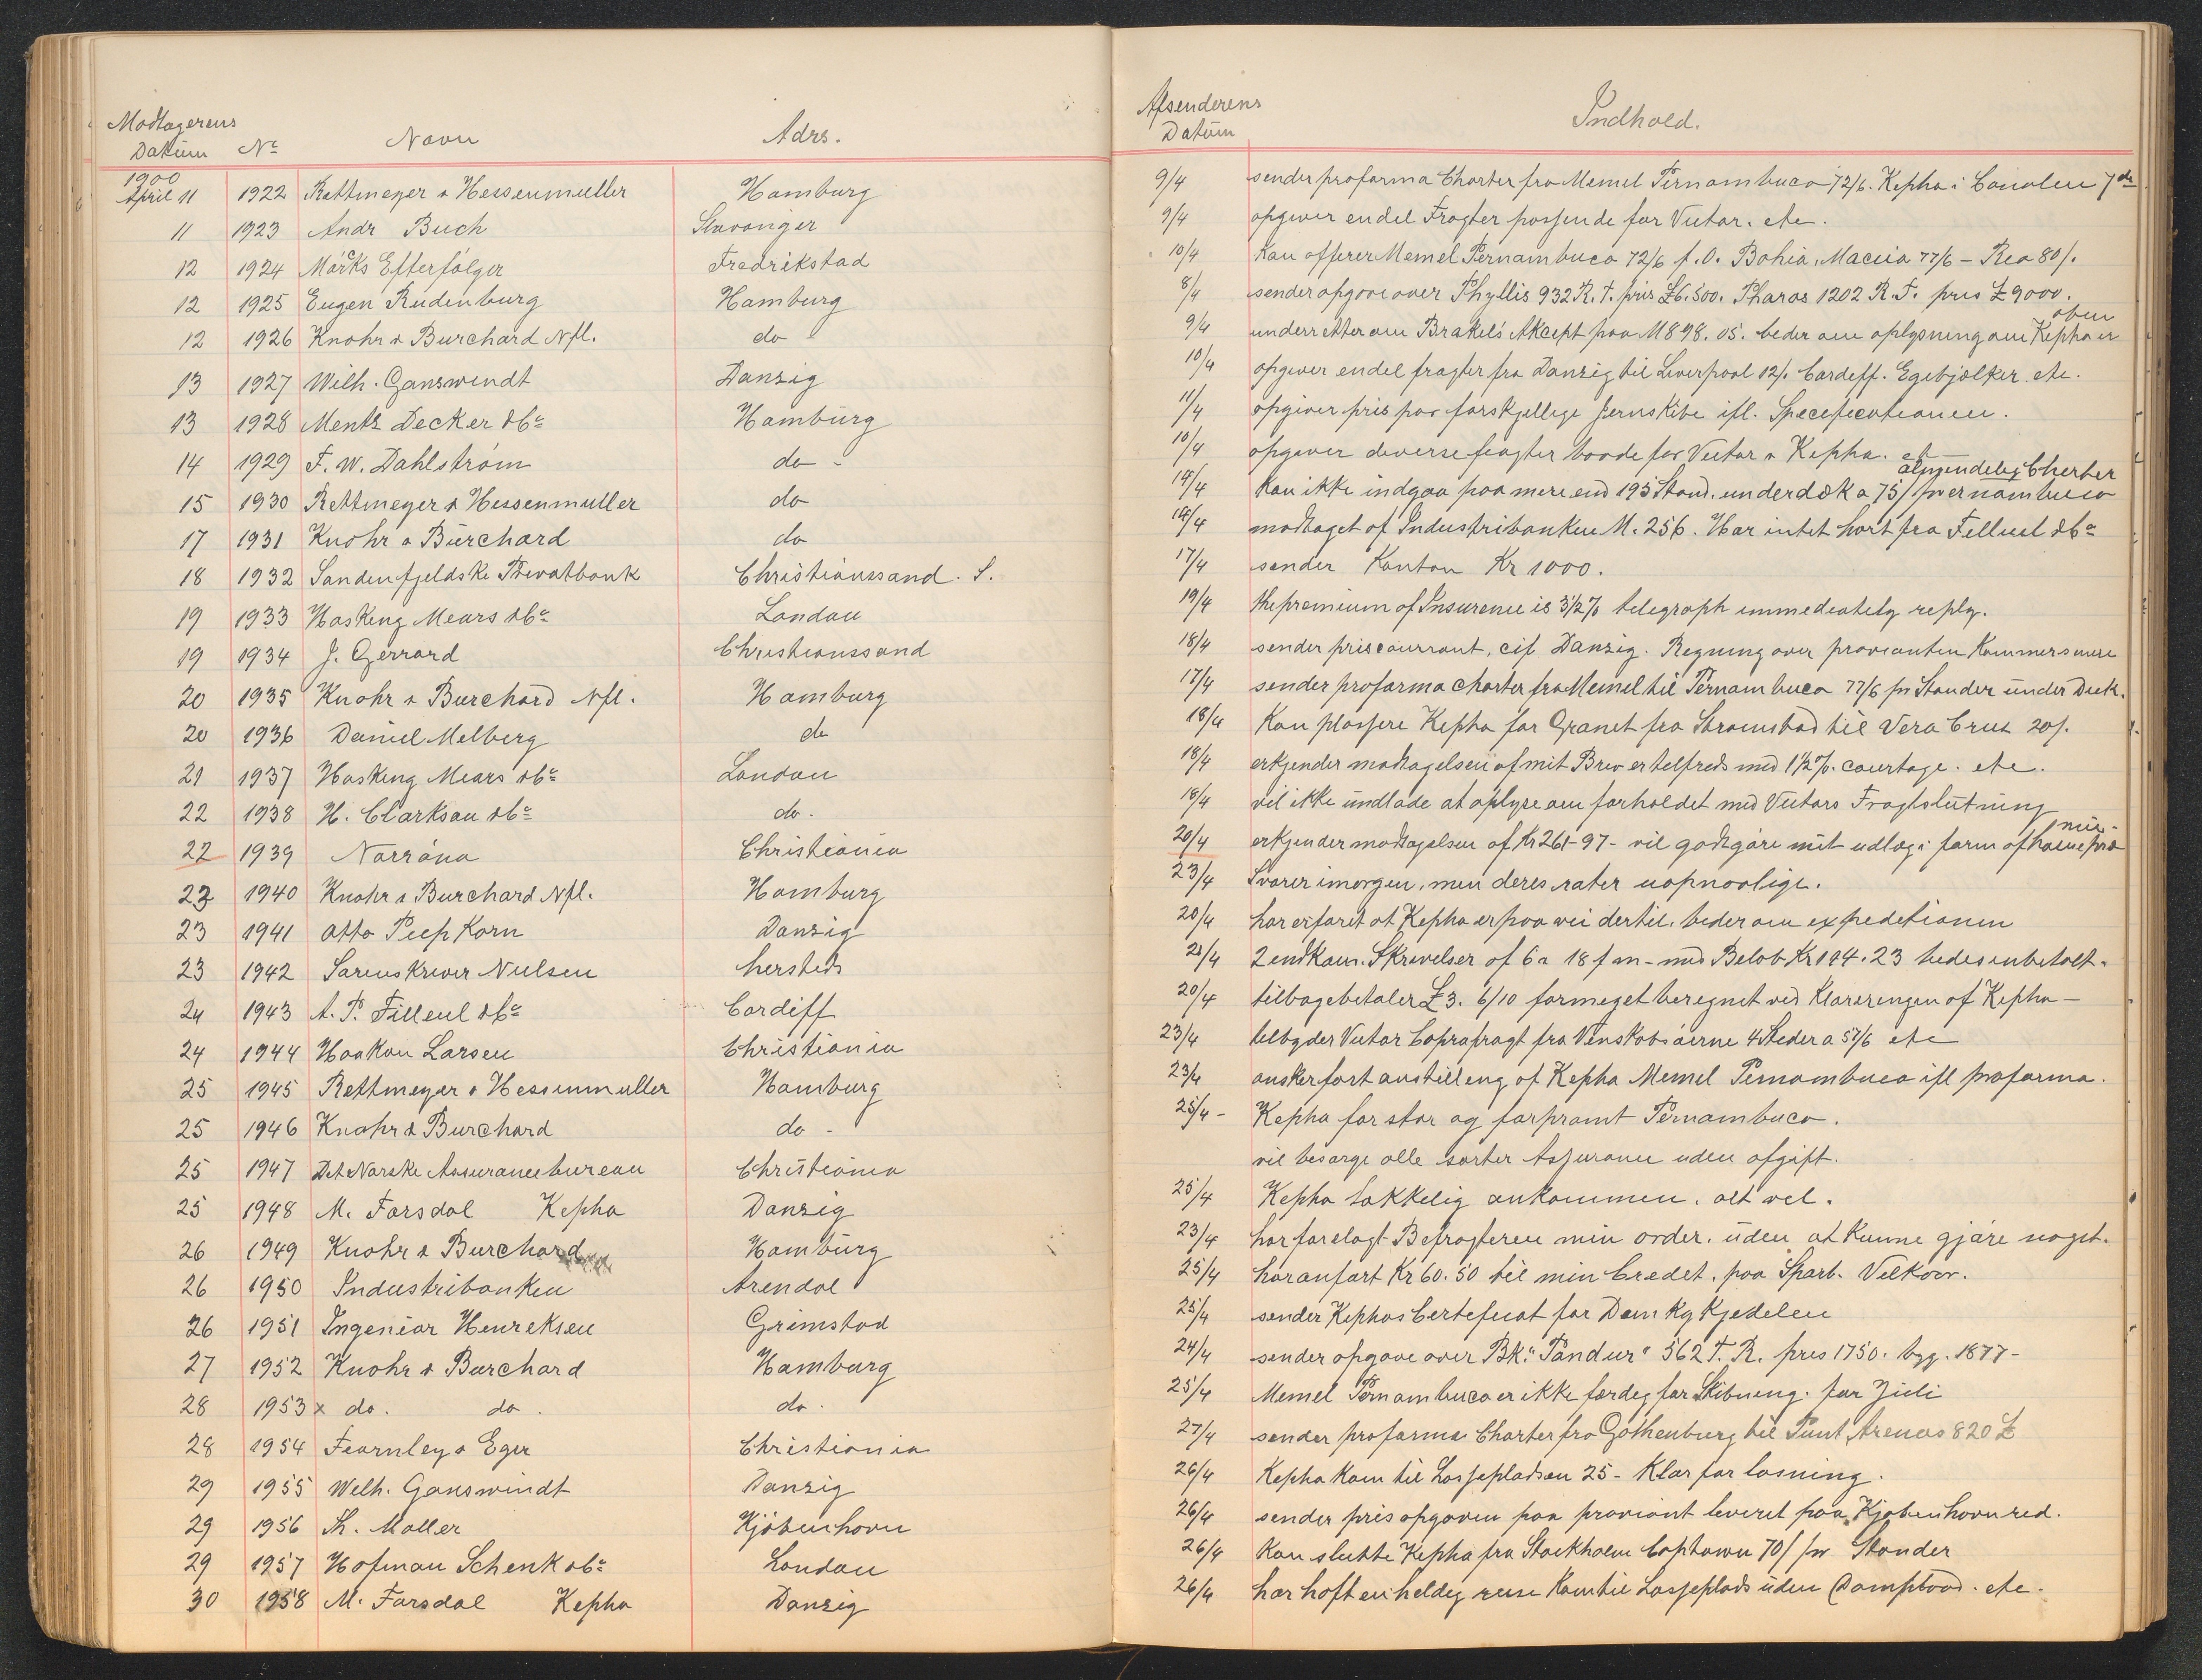 Modtagerens
Datum No Navn Adrs.
1900
April 11 1922 Rettmeyer & Hessenmuller Hamburg
11 1923 Andr Buch Stavanger
12 1924 Mørcks Efterfølger Fredrikstad
12 1925 Eugen Rudenburg Hamburg
12 1926 Knohr & Burchard Nfl. do
13 1927 Wilh. Ganswindt Danzig
13 1928 Mentz Decker & Co Hamburg
14 1929 F. W. Dahlstrøm do -
15 1930 Rettmeyer & Hessenmuller do
17 1931 Knohr & Burchard do
18 1932 Søndenfjeldske Privatbank Christianssand. S.
19 1933 Hasking Mears & Co London
19 1934 J. Gerrard Christianssand
20 1935 Knohr & Burchard Nfl. Hamburg
20 1936 Daniel Melberg do
21 1937 Hasking Mears & Co London
22 1938 H. Clarkson & Co do.
22 1939 Norrøna Christiania
23 1940 Knohr & Burchard Nfl. Hamburg
23 1941 Otto Piepkorn Danzig
23 1942 Sorenskriver Nielsen hersteds
24 1943 A. P. Filleul & Co Cardiff
24 1944 Haakon Larsen Christiania
25 1945 Rettmeyer & Hessenmuller Hamburg
25 1946 Knohr & Burchard do -
25 1947 Det Norske Assurancebureau Christiania
25 1948 M. Forsdal Kepha Danzig
26 1949 Knohr & Burchard Hamburg
26 1950 Industribanken Arendal
26 1951 Ingeniør Henriksen Grimstad
27 1952 Knohr & Burchard Hamburg
28 1953 x do. do. do.
28 1954 Fearnley & Eger Christiania
29 1955 Wilh. Ganswindt Danzig
29 1956 Th. Møller Kjøbenhavn
29 1957 Hofman Schenk & Co London
30 1958 M. Forsdal Kepha Danzig
Afsenderens
Datum Indhold.
9/4 sender proforma Charter fra Memel Pernambuco 72/6. Kepha i Canalen 7de
9/4 opgiver endel Fragter passende for Victor. etc.
10/4 Kan offerer Memel Pernambuco 72/6 f. O. Bahia, Maceio 77/6 - Rio 80/.
8/4 sender opgave over Phyllis 932 R. T. pris £6.500. Pharos 1202 R. T. pris £9000.
9/4 underretter om Brakels Akcept paa M 898.05. beder om oplysning om Kepha er
oben
10/4 opgiver endel fragter fra Danzig til Liverpool 12/. Cardiff. Egebjelker. etc.
11/4 opgiver pris paa forskjellige Jernskibe ifl. Specificationen.
10/4 opgiver diverse fragter baade for Victor & Kepha. et
14/4 Kan ikke indgaa paa mere end 195 Stand. underdæk a 75/ pernambuco
almindelig Cherter
14/4 modtaget af Industribanken M. 256. Har intet hørt fra Filleul & Co
17/4 sender Konton Kr 1000.
19/4 the premium of Insurence is 3 1/2 % telegraph immediately reply.
18/4 sender priscourrant, cif Danzig. Regning over provianten Kommer senere
17/4 sender proforma charter fra Memel til Pernambuco 77/6 pr Stander under Dæk.
18/4 Kan plassere Kepha for Granit fra Strømstad til Vera Cruz 20/.
18/4 erkjender modtagelsen af mit Brev er tilfreds med 1 1/2 %. courtage. etc.
18/4 vil ikke undlade at oplyse om forholdet med Victors Fragtslutning
20/4 erkjender modtagelsen af Kr 261-97 - vil godtgøre mit udlæg i form af
23/4 Svarer imorgen, men deres rater uopnaalige.
20/4 har erfaret at Kepha er paa vei dertil. beder om expeditionen
21/4 2 endKom. Skrivelser af 6 a 18 f m - med Beløb Kr 194.23 bedes inbetalt.
20/4 tilbagebetaler £3. 6/10 formeget beregnet ved Klareringen af Kepha -
23/4 tilbyder Victor Coprafragt fra Venskabsøerne 4 Steder a 57/6 etc
23/4 ønsker fort anstilling af Kepha Memel Pernambuco ifl proforma.
25/4 - Kepha for stor og forpramt Pernambuco.
vil besørge alle sorter Assurance uden afgift.
25/4 Kepha lykkelig ankommen. alt vel.
23/4 har forelagt Befragteren min order. uden at kunne gjøre noget.
25/4 har anført Kr 60.50 til min Credit. paa Sparb. Vilkaar.
25/4 sender Kephas Certeficat for Donkykjedelen
24/4 sender opgave over Bk. "Pandur" 562 T. R. pris 1750. byg. 1877-
25/4 Memel Pernambuco er ikke færdig for Skibning. før Juli
27/4 sender proforma Charter fra Gothenburg til Punt Arenas 820 £
26/4 Kepha Kom til Lossepladsen 25 - Klar for losning.
26/4 sender prisopgaven paa proviant leveret paa Kjøbenhavn red.
26/4 Kan slutte Kepha fra Stockholm Captown 70/ pr Stander
26/4 har hoft en heldig reise Kom til Losseplads uden Dampbaad. etc.